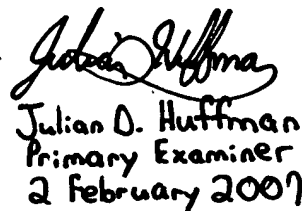 Julian Huffman
Julian D. Huffman
Primary Examiner
2 February 2007